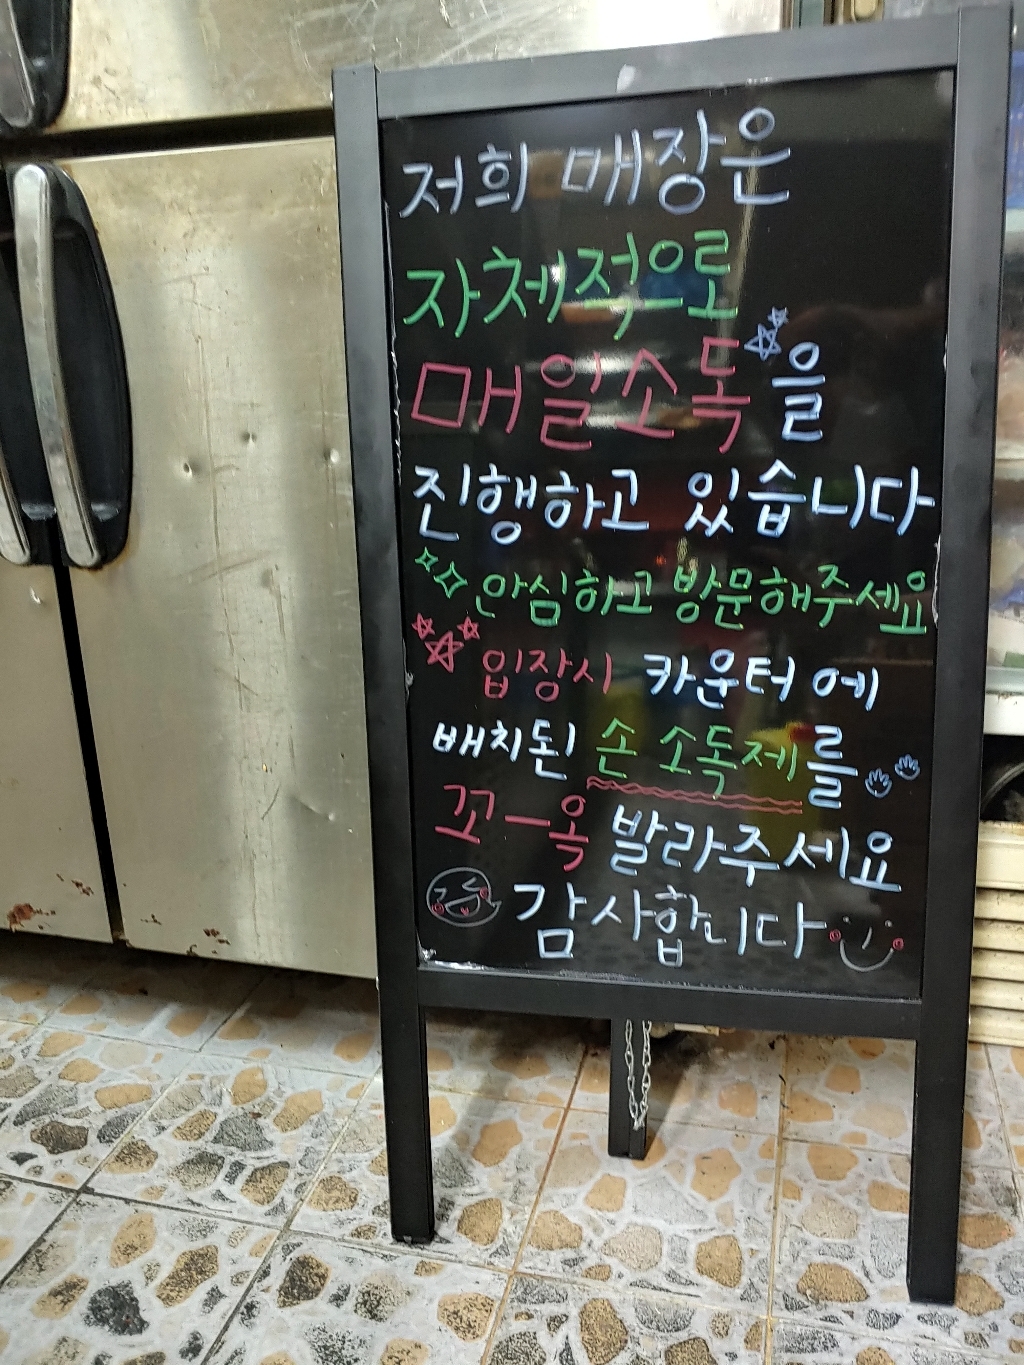 저희 매장은
자체적으로
매일소독을
진행하고 있습니다
안심하고 방문해주세요
입장시 카운터에
배치된 손 소독제를
꼬-옥 발라주세요
감사합니다